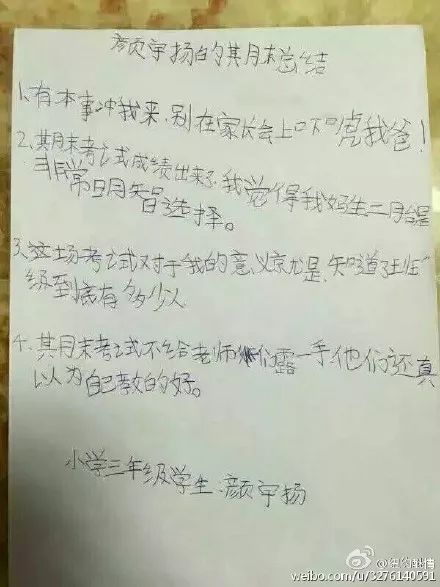 颜宇扬的期末总结
1.有本事冲我来,别在家长会上吓唬我爸!
2.期末考试成绩出来了,我觉得我妈生二胎是
非常明智选择。
3.这场考试对于我的意义就是,知道了班
级到底有多少人
4.期末考试不给老师们露一手,他们还真
以为自己教的好。
小学三年级学生 颜宇扬
weibo.com/u/3276140591